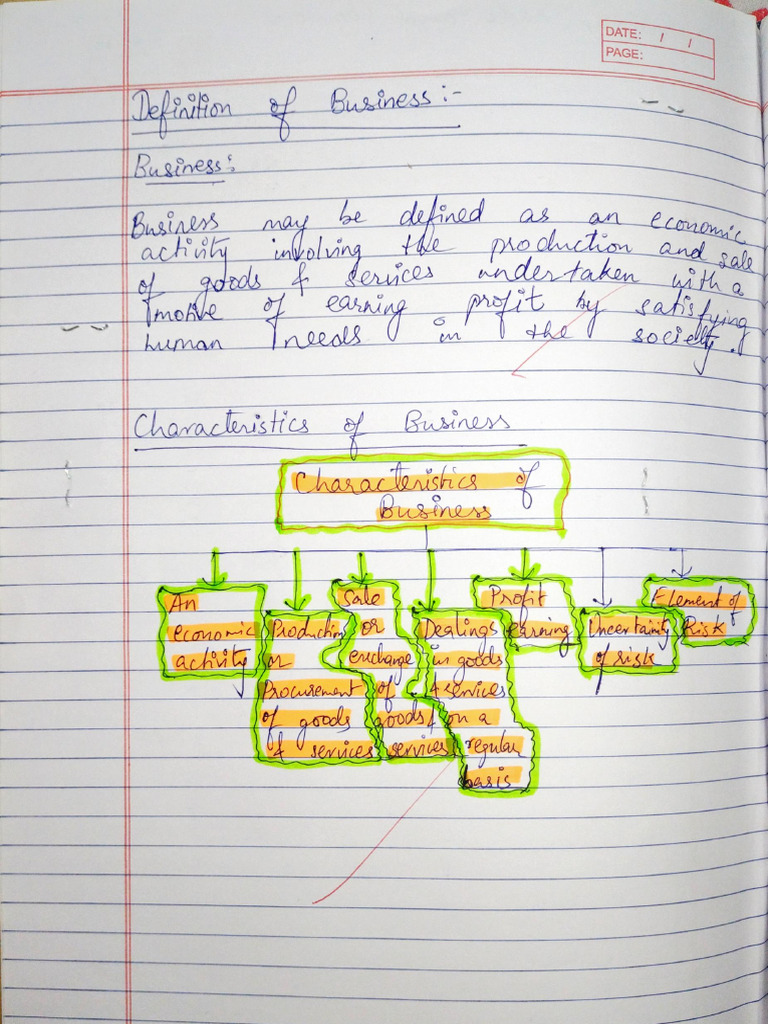 DATE: / /
PAGE:
Definition of Business:-
Business:
Business may be defined as an economic
activity involving the production and sale
of goods & services undertaken with a
motive of earning profit by satisfying
human needs in the society.
Characteristics of Business
Characteristics of
Business
An
economic
activity
Production
or
Procurement
of goods
& services
Sale
or
exchange
of
goods &
services
Dealings
in goods
& services
on a
regular
basis
Profit
earning
Uncertainty
of risk
Element of
Risk